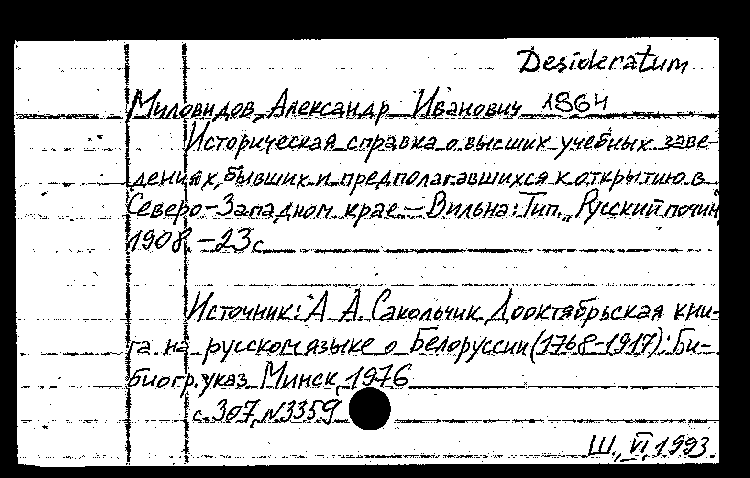 Desideratum
Миловидов, Александр Иванович 1864
Историческая справка о высших учебных заве-
дениях, бывших и предполагавшихся к открытию в
Северо-Западном крае.— Вильна: Тип. „Русский почин
1908.-23с.
Источник: А. А. Сакольчик. Дооктябрьская кни-
га на русском языке о Белоруссии (1768-1917): Би-
биогр. указ. Минск, 1976
с.307, №3359
Ш., VI, 1993.